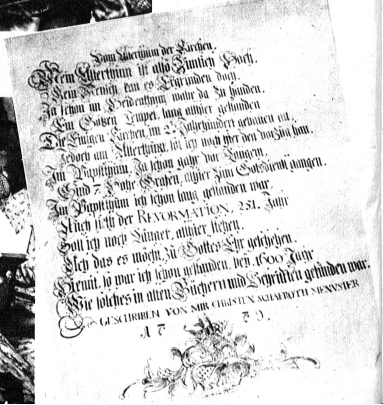 Vom Alterthum der Kirchen.
Mein Alterthum ist also Zimlich Hoch,
Kein Mensch kan es Ergründen doch.
Ja schon im Heidenthum wahr da Zu handen.
Ein Götzen Tempel, lang alhier gestanden
Die Einigen Kirchen, im 2. Jahrhundert gebauen
Jedoch am Alterthum, ich noch hier den vorzüg han.
Im Papstthum, Ja schon gahr vor Langem.
Sind 7. Hohe Grafen, alhier Zum Gotsdienst gangen.
Im Papstthum ich schon lang gestanden war
Auch sith der REFORMATION, 251. Jahr
Soll ich noch Länger, alhier stehen.
Ich das es möcht, Zu Gottes Ehr geschehen.
so war ich schon gestanden, bey 1600 Jahr
Wie solches in alten Büchern und Schrifften gefunden war.
GESCHRIBEN VON MIR CHRISTEN SCHAFROTH
A 7 79.